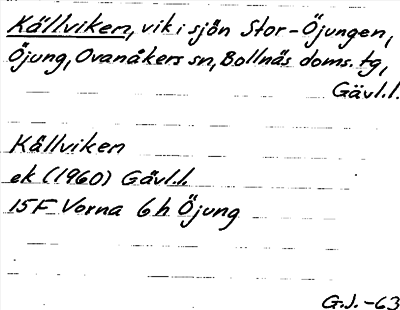 Källviken, vik i sjön Stor-Öjungen,
Öjung, Ovanåkers sn, Bollnäs doms. tg,
Gävl.l.
Källviken
ek (1960) Gävl.l.
15F Vorna 6h Öjung
G.J. -63